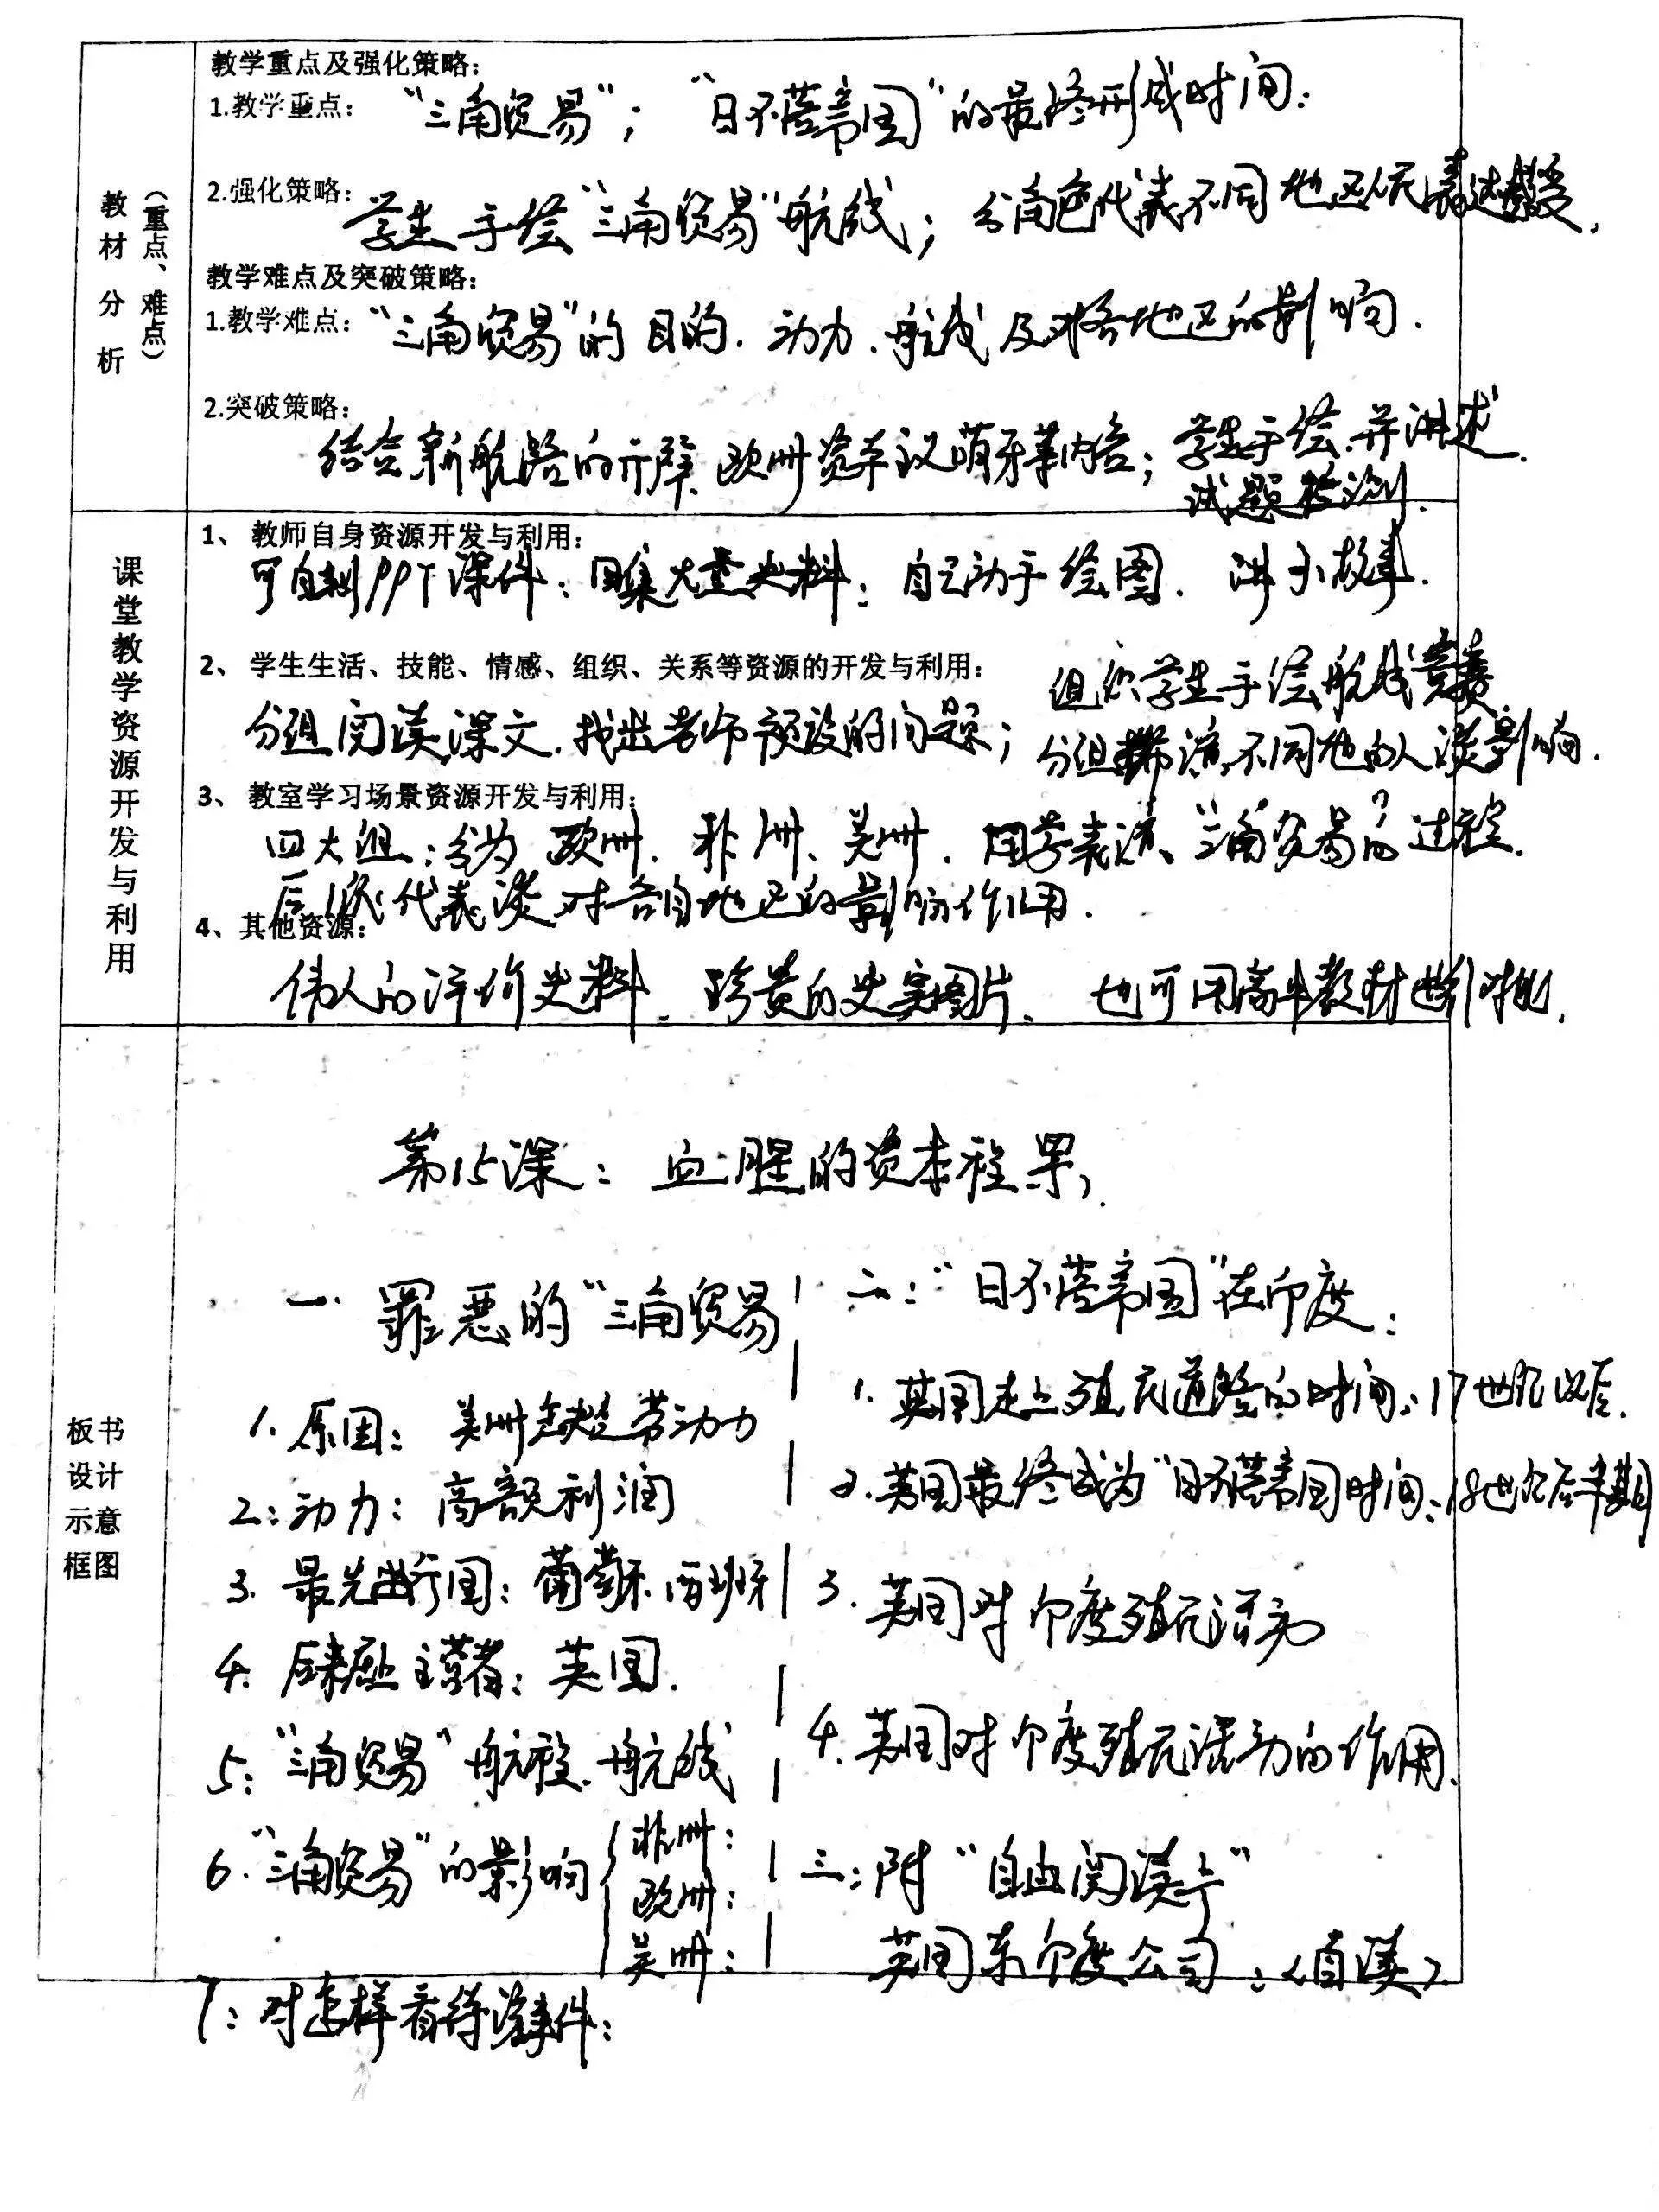 教材分析
（重点、难点）
教学重点及强化策略：
1.教学重点： “三角贸易”； “日不落帝国”的最终形成时间：
2.强化策略： 学生手绘“三角贸易”航线； 分角色代表不同地区人民表达感受.
教学难点及突破策略：
1.教学难点： “三角贸易”的目的. 动力. 航线及对各地区的影响.
2.突破策略：
结合新航路的开辟、欧洲资本主义萌芽等内容； 学生手绘.并讲述.
试题检测.
课堂教学资源开发与利用
1、 教师自身资源开发与利用：
可自制PPT课件： 搜集大量史料： 自己动手绘图. 讲小故事.
2、 学生生活、技能、情感、组织、关系等资源的开发与利用：
组织学生手绘航线竞赛
分组阅读课文.找出老师预设的问题；
分组扮演不同地区的人谈影响.
3、 教室学习场景资源开发与利用：
四大组：分为 欧洲. 非洲、美洲. 用 表演、“三角贸易”的过程.
后 代表谈对各自地区的影响作用.
4、其他资源：
伟人的评价史料、 珍贵的史实图片、 也可用高中教材进行对比.
板书设计示意框图
第15课： 血腥的资本积累
一. 罪恶的“三角贸易
1. 原因： 美洲缺乏劳动力
2：动力： 高额利润
3. 最先进行国：葡萄牙.西班牙
4. 后来居上主营者：英国.
5：“三角贸易”航程.航线
6.“三角贸易”的影响
非洲：
欧洲：
美洲：
7：对怎样看待该事件：
二：“日不落帝国”在印度：
1. 英国走上殖民道路的时间：17世纪以后.
2.英国最终成为“日不落帝国时间：18世纪后半期
3. 英国对印度殖民活动
4.英国对印度殖民活动的作用.
三：附“自由阅读卡”
英国东印度公司：（自读）